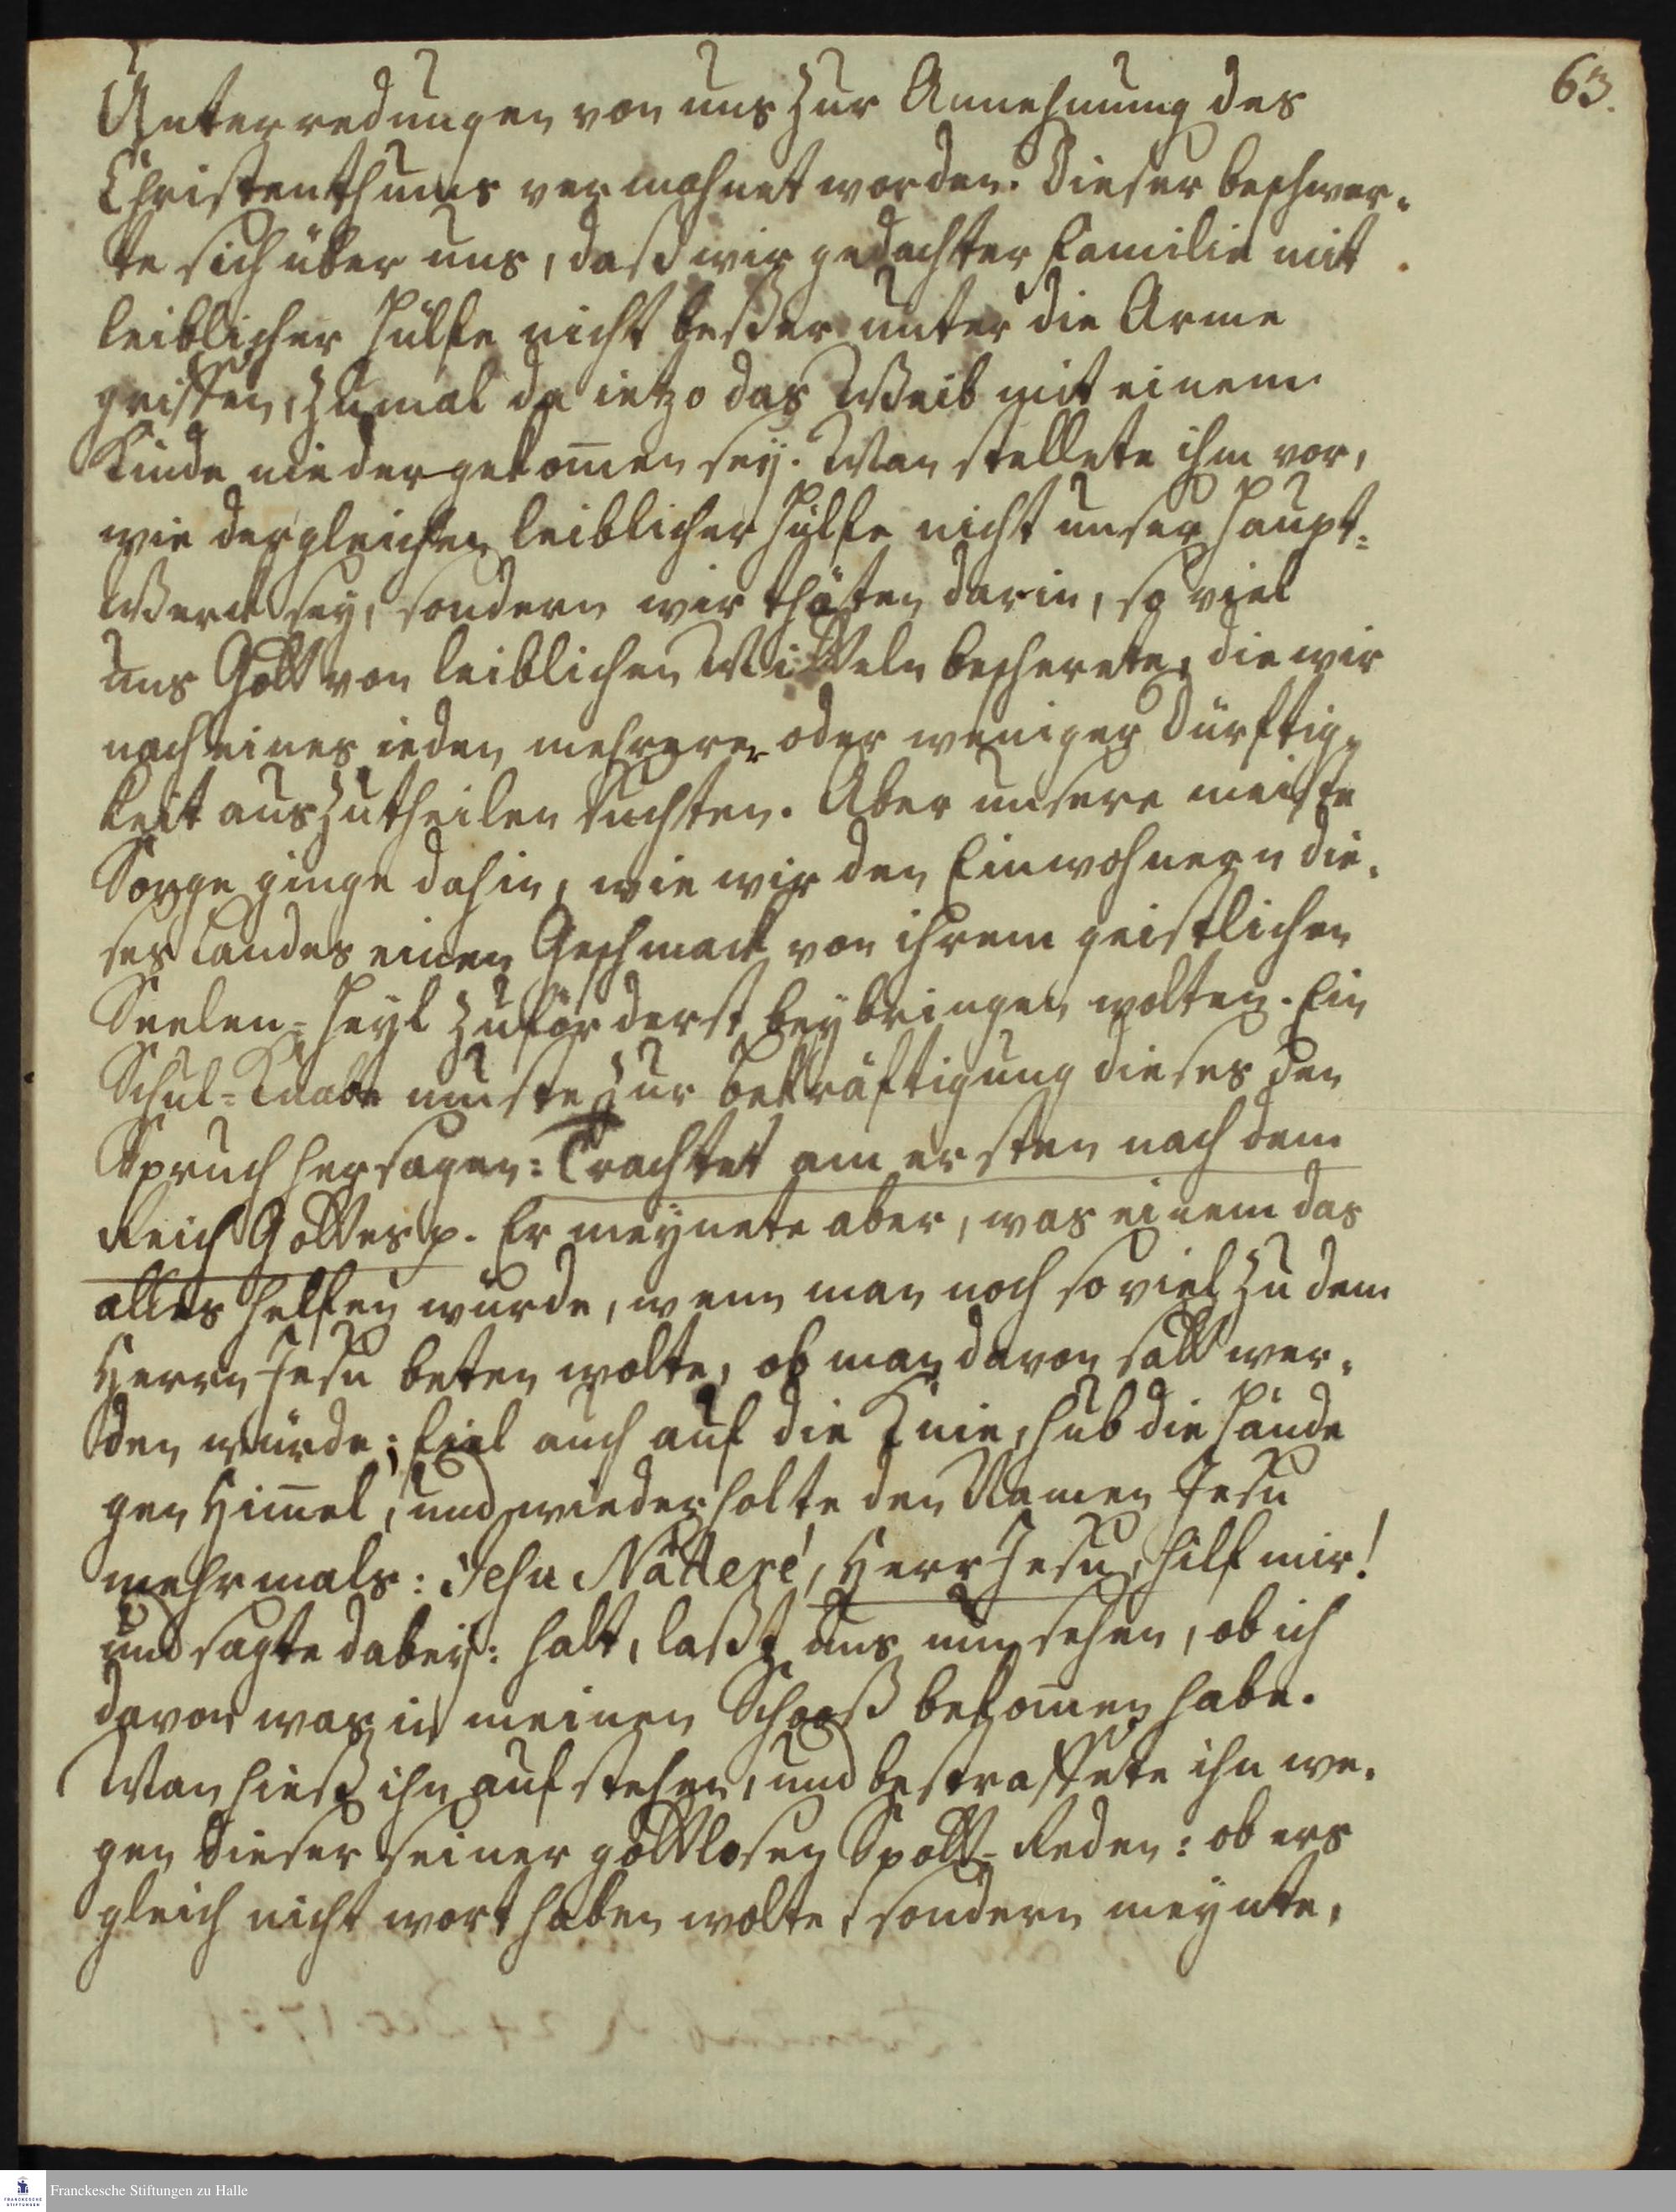 63.
Unterredungen von uns zur Annehmung des
Christenthums vermahnet worden. Dieser beschwer-
te sich über uns, daß wir gedachter Familie mit
leiblicher Hülfe nicht beßer unter die Arme
griffen, zumal da ietzo das Weib mit einem
Kinde niedergekom̄en sey. Man stellete ihm vor,
wie dergleichen leiblicher Hülfe nicht unser Haupt-
Werck sey, sondern wir thäten darin, so viel
uns Gott von leiblichen Mitteln bescherete, die wir
nach eines ieden mehrerer oder weniger Dürftig-
keit auszutheilen suchten. Aber unsere meiste
Sorge ginge dahin, wie wir den Einwohnern die-
ses Landes einen Geschmack von ihrem geistlichen
Seelen-Heyl zuförderst beybringen wolten. Ein
Schul-Knabe muste zur Bekräftigung dieses den
Spruch hersagen: Trachtet am ersten nach dem
Reich Gottes p. Er meynete aber, was einem das
alles helfen würde, wenn man noch so viel zu dem
Herrn Jesu beten wolte, ob man davon satt wer-
den würde; fiel auch auf die Knie, hub die Hände
gen Him̄el, und wiederholte den Namen Jesu
mehrmals: Jesu Nátteré, Herr Jesu, hilf mir!
und sagte dabey: halt, laßt uns nun sehen, ob ich
davon was in meinen Schooß bekom̄en habe.
Man hieß ihn aufstehen, und bestraffete ihn we-
gen dieser seiner gottlosen Spott-Reden: ob ers
gleich nicht wort haben wolte, sondern meynte,
Franckesche Stiftungen zu Halle
FRANCKESCHE
STIFTUNGEN